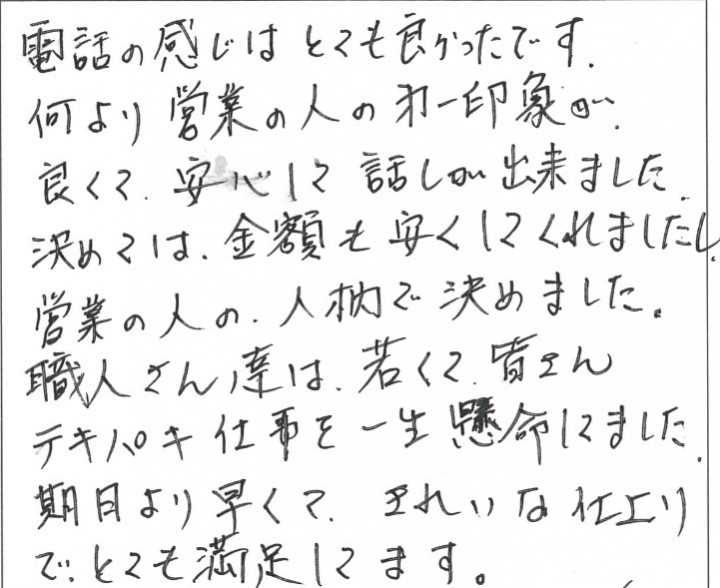 電話の感じはとても良かったです.
何より営業の人の才一印象が.
良くて.安心して話しが出来ました.
決めては.金額も安くしてくれましたし.
営業の人の.人柄で決めました。
職人さん達は.若くて.皆さん
テキパキ仕事を一生懸命してました.
期日より早くて.きれいな仕上り
で.とても満足してます。